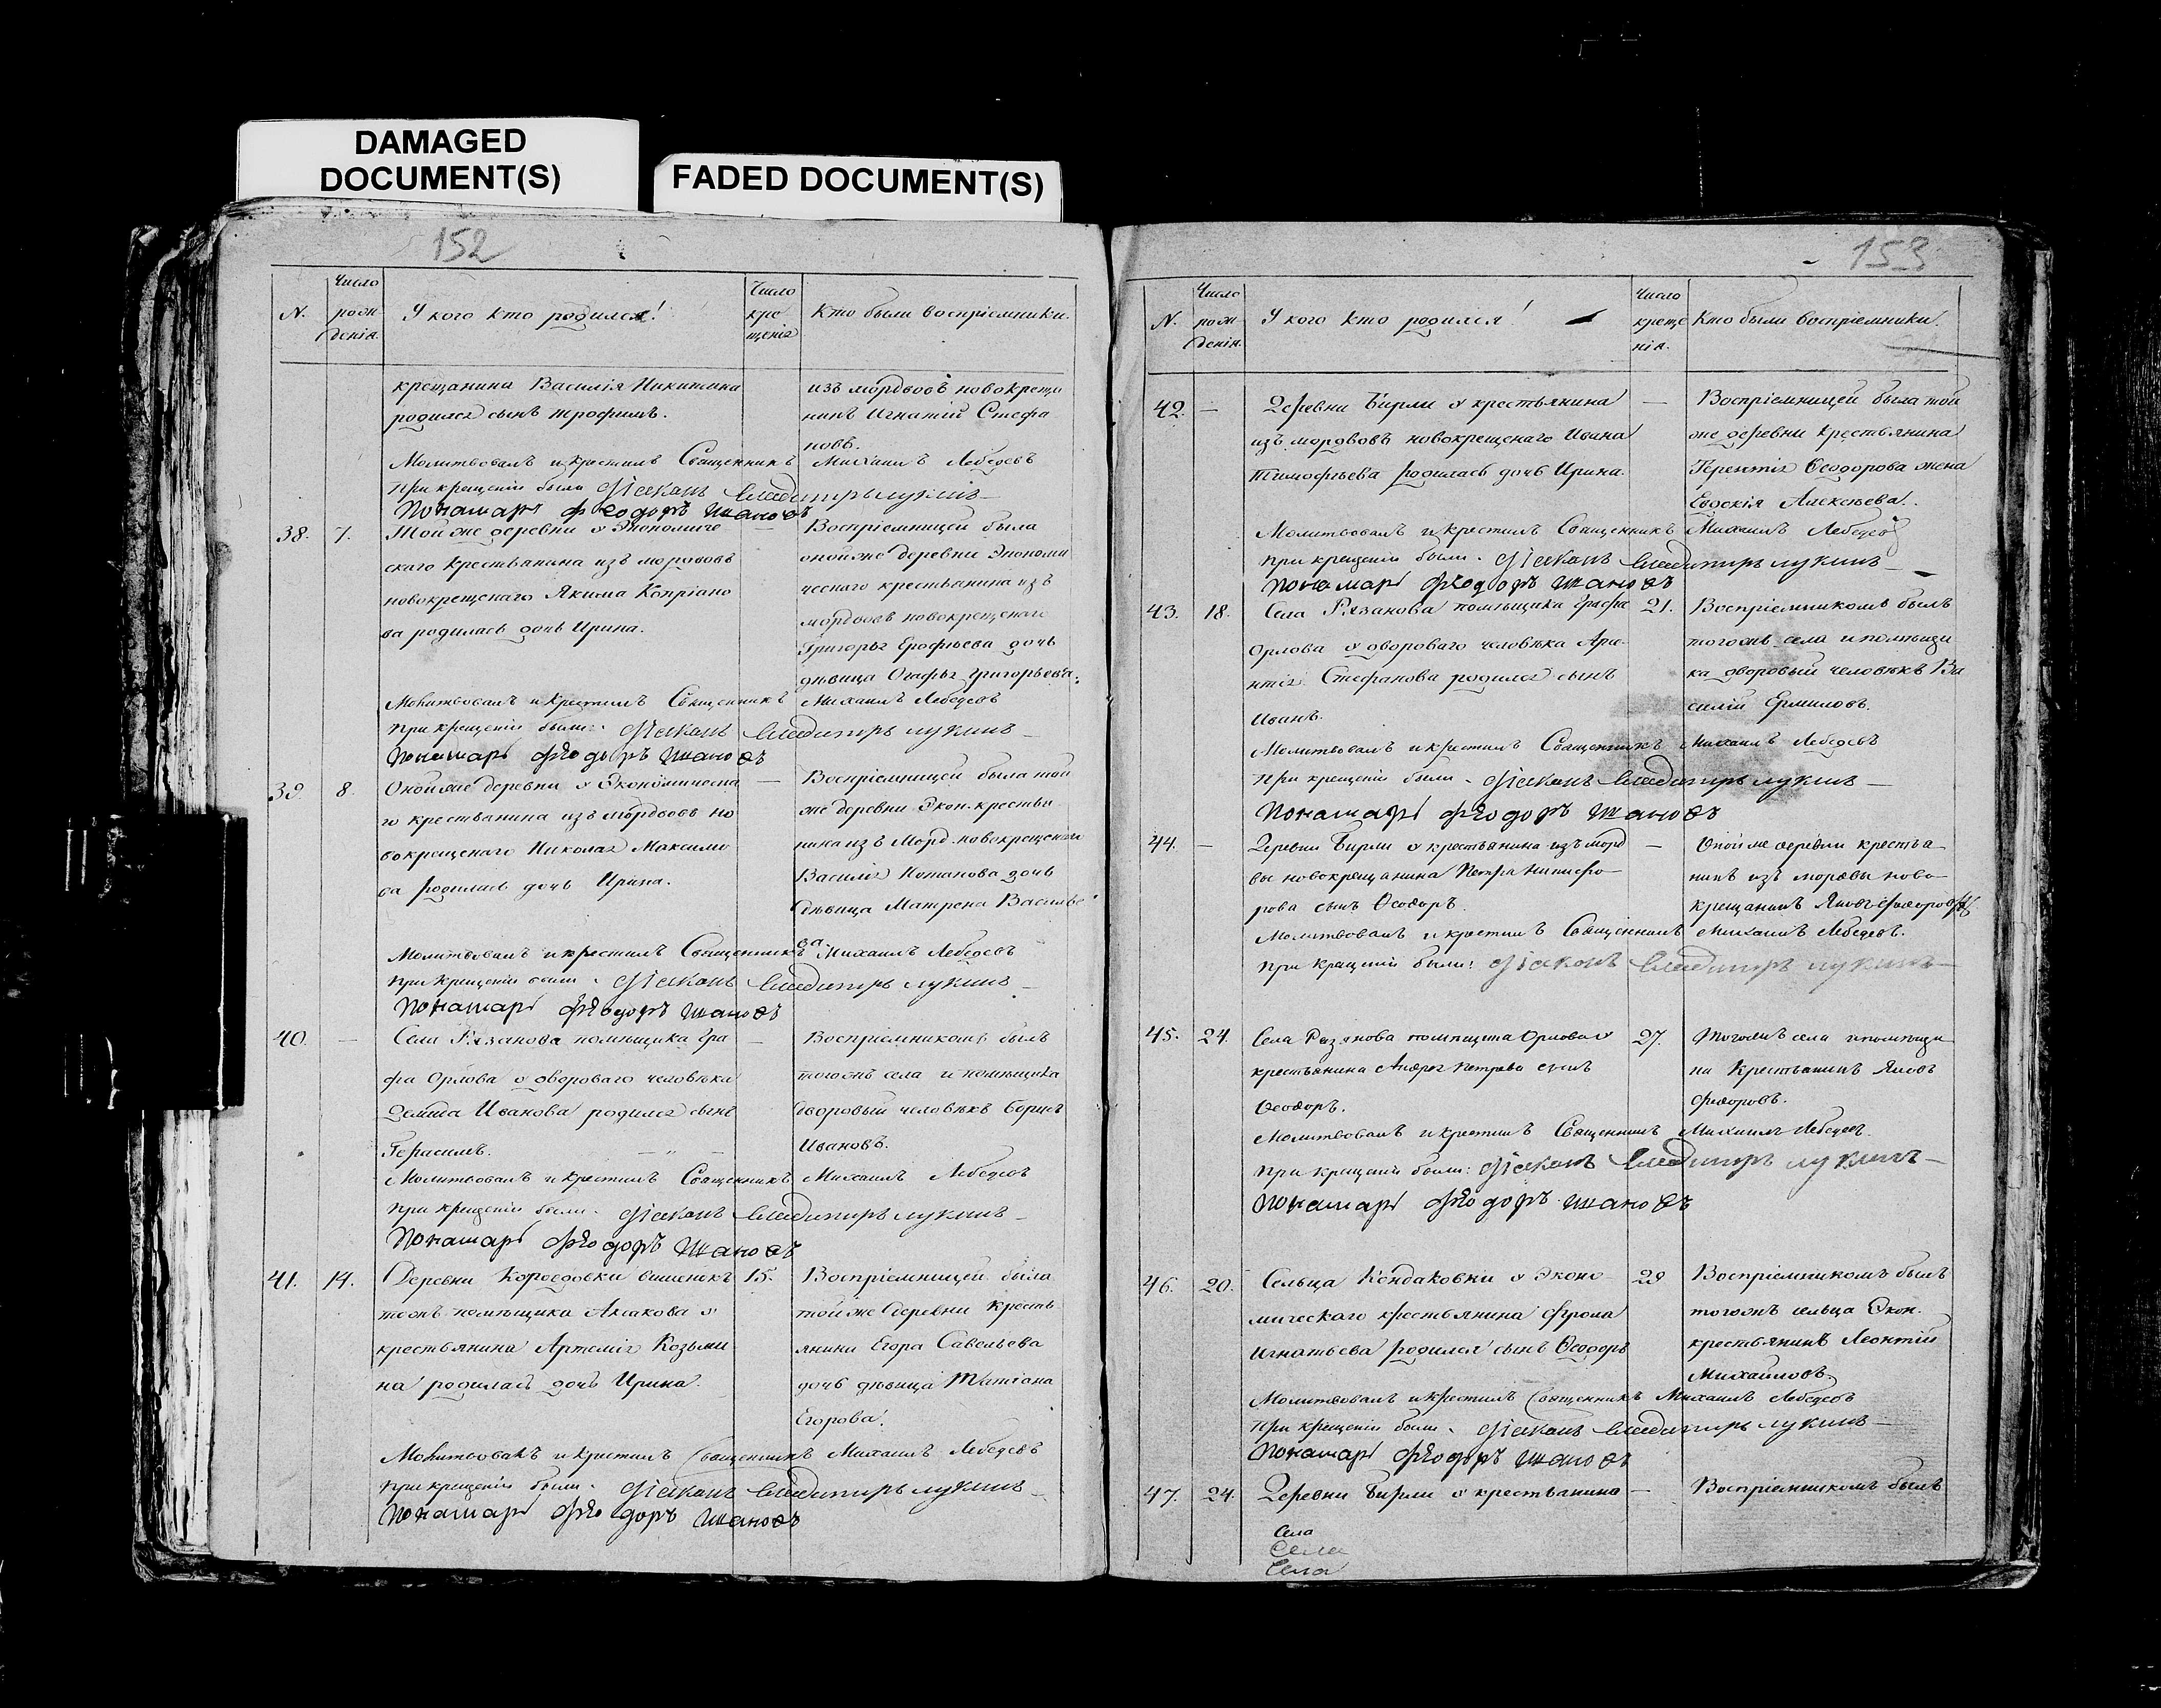 DAMAGED
DOCUMENT(S)
FADED DOCUMENT(S)
152
N.
Число
рож
денія.
У кого кто родился!
Число
кре
щенія
Кто были воспріемники.
крещанина Василія Никитина
родился сынъ Трофимъ.
изъ мордвовъ новокрещи
нинъ Игнатій Стефа
новъ.
Молитвовалъ и крестилъ Священникъ Михаилъ Лебедевъ
При крещеніи были Діаконъ Владимиръ Лукинъ
Пономарь Фѣодоръ Ивановъ
38. 7.
Той же деревни у Экономиче
скаго крестьянина изъ мордвовъ
новокрещенаго Якима Копріано
ва родилась дочь Ирина.
—
Воспріемницей была
оной же деревни Экономи
ческого крестьянина изъ
мордвовъ новокрещенаго
Григорья Ерофѣева дочь
дѣвица Огафья Григорьева.
Молитвовалъ и крестилъ Священникъ Михаилъ Лебедевъ
При крещеніи были. Діаконъ Владимиръ Лукинъ
Пономарь Фѣодоръ Ивановъ
39. 8.
Оной же деревни у Экономическа
го крестьянина изъ мордвовъ но
вокрещенаго Николая Максимо
ва родилась дочь Ирина.
—
Воспріемницей была той
же деревни Экон. крестья
нина изъ Морд. новокрещенаго
Василія Потапова дочь
дѣвица Матрена Василье
ва
Молитвовалъ и крестилъ Священникъ Михаилъ Лебедевъ
При крещеніи были. Діаконъ Владимиръ Лукинъ
Пономарь Фѣодоръ Ивановъ
40. —
Села Рязанова помѣщика Гра
фа Орлова у двороваго человѣка
Демида Иванова родился сынъ
Герасимъ.
—
Воспріемникомъ былъ
тогожъ села и помѣщика
дворовый человѣкъ Борисъ
Ивановъ.
Молитвовалъ и крестилъ Священникъ Михаилъ Лебедевъ
При крещеніи были. Діаконъ Владимиръ Лукинъ
Пономарь Фѣодоръ Ивановъ
41. 14.
Деревни Короедовки вишенокъ
тожъ помѣщика Аксакова у
крестьянина Артемія Козьми
на родилась дочь Ирина.
15.
Воспріемницей была
той же деревни кресть
янина Егора Савельева
дочь дѣвица Татіана
Егорова.
Молитвовалъ и крестилъ Священникъ Михаилъ Лебедевъ
При крещеніи были. Діаконъ Владимиръ Лукинъ
Пономарь Фѣодоръ Ивановъ
153
N.
Число
рож
денія.
У кого кто родился!
Число
креще
нія.
Кто были воспріемники.
42. —
Деревни Бирли у крестьянина
изъ мордвовъ новокрещенаго Ивана
Тимофѣева родилась дочь Ирина.
—
Воспріемницей была той
же деревни крестьянина
Терентія Ѳеодорова жена
Евдокія Алексѣева.
Молитвовалъ и крестилъ Священникъ Михаилъ Лебедевъ
При крещеніи были. Діаконъ Владимиръ Лукинъ
Пономарь Фѣодоръ Ивановъ
43. 18.
Села Рязанова помѣщика Графа
Орлова у двороваго человѣка
Стефанова родился сынъ
Иванъ.
21.
Воспріемникомъ былъ
тогожъ села и помѣщи
ка дворовый человѣкъ Ва
силій Ермиловъ.
Молитвовалъ и крестилъ Священникъ Михаилъ Лебедевъ
При крещеніи были. Діаконъ Владимиръ Лукинъ
Пономарь Фѣодоръ Ивановъ
44. —
Деревни Бирли у крестьянина изъ морд
вы новокрещанина Петра Никифо
рова сынъ Ѳеодоръ.
—
Оной же деревни крестья
нинъ изъ мордвы ново
крещанинъ Яковъ Федоровъ
Молитвовалъ и крестилъ Священникъ Михаилъ Лебедевъ.
При крещеніи были: Діаконъ Владимиръ Лукинъ
45. 24.
Села Рязанова помѣщика Орлова у
крестьянина Андрея Петрова сынъ
Ѳеодоръ.
27.
Тогожъ села и помѣщи
ка Крестьянинъ Яковъ
Федоровъ.
Молитвовалъ и крестилъ Священникъ Михаилъ Лебедевъ.
При крещеніи были: Діаконъ Владимиръ Лукинъ
Пономарь Фѣодоръ Ивановъ
46. 20.
Сельца Кондаковки у Эконо
мическаго крестьянина Фрола
Игнатьева родился сынъ Ѳеодоръ
29
Воспріемникомъ былъ
тогожъ сельца Экон.
крестьянинъ Леонтій
Михайловъ.
Молитвовалъ и крестилъ Священникъ Михаилъ Лебедевъ
При крещеніи были. Діаконъ Владимиръ Лукинъ
Пономарь Фѣодоръ Ивановъ
47. 24.
Деревни Бирли у крестьянина
—
Воспріемникомъ былъ
Села
Села
Села